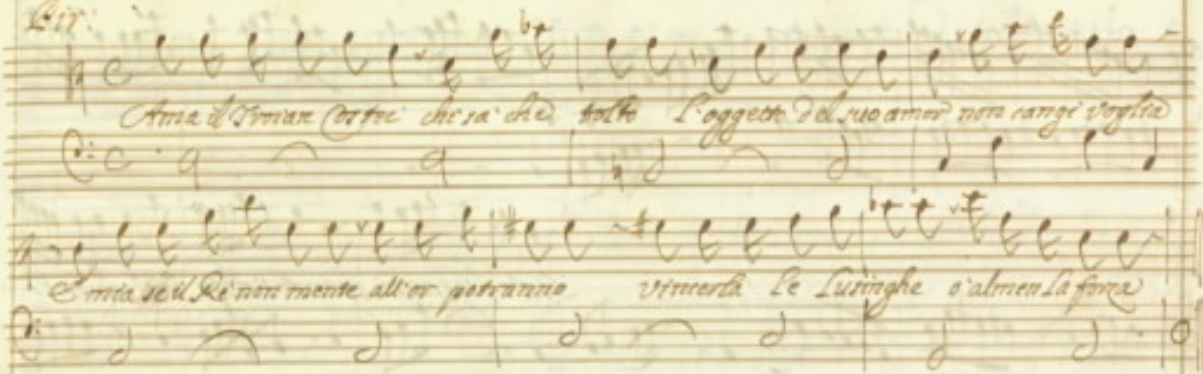 Pir:
Ama il Troian Costei chi sà che tolto L'oggetto del suo amor non cangi voglia
E mia se il Rè non mente all'or potranno vincerla le Lusinghe ò almen la forza